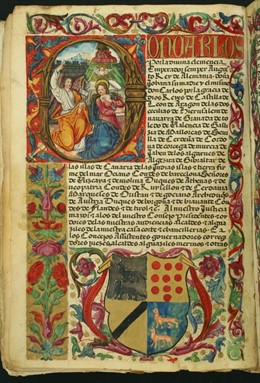 DON CARLOS
Por la divina clemencia
Emperador semper Augusto
Rey de Alemania doña
Juana su madre y el mismo
don Carlos por la gracia de
dios Reyes de Castilla de
Leon de Aragon de las dos
secilias de Hierusalem de
navarra de Granada de to
ledo de Valencia de Galli
zia de Mallorcas de Sevi
lla de Cerdeña de Cordo
va de corcega de murcia de
Jahen de los algarves de
Algezira de Gibraltar de
las islas de Canaria de las Indias islas e tierra firme
del mar Oceano Condes de barcelona Señores
de Vizcaya e de molina Duques de Athenas e de
neopatria Condes de Ruysellon e de Cerdania
Marqueses de Oristan e de gociano Archiduques
de Austria Duques de borgoña e de bravante Condes
de Flandes e de tirol &c. Al nuestro Justicia
mayor e a los del nuestro Consejo Presidentes e oy
dores de las nuestras audiencias alcaldes e algua
ziles de la nuestra casa corte e chancillerias E a
los Concejos Assistentes governadores corregi
dores jueses alcaldes alguaziles merinos e otras